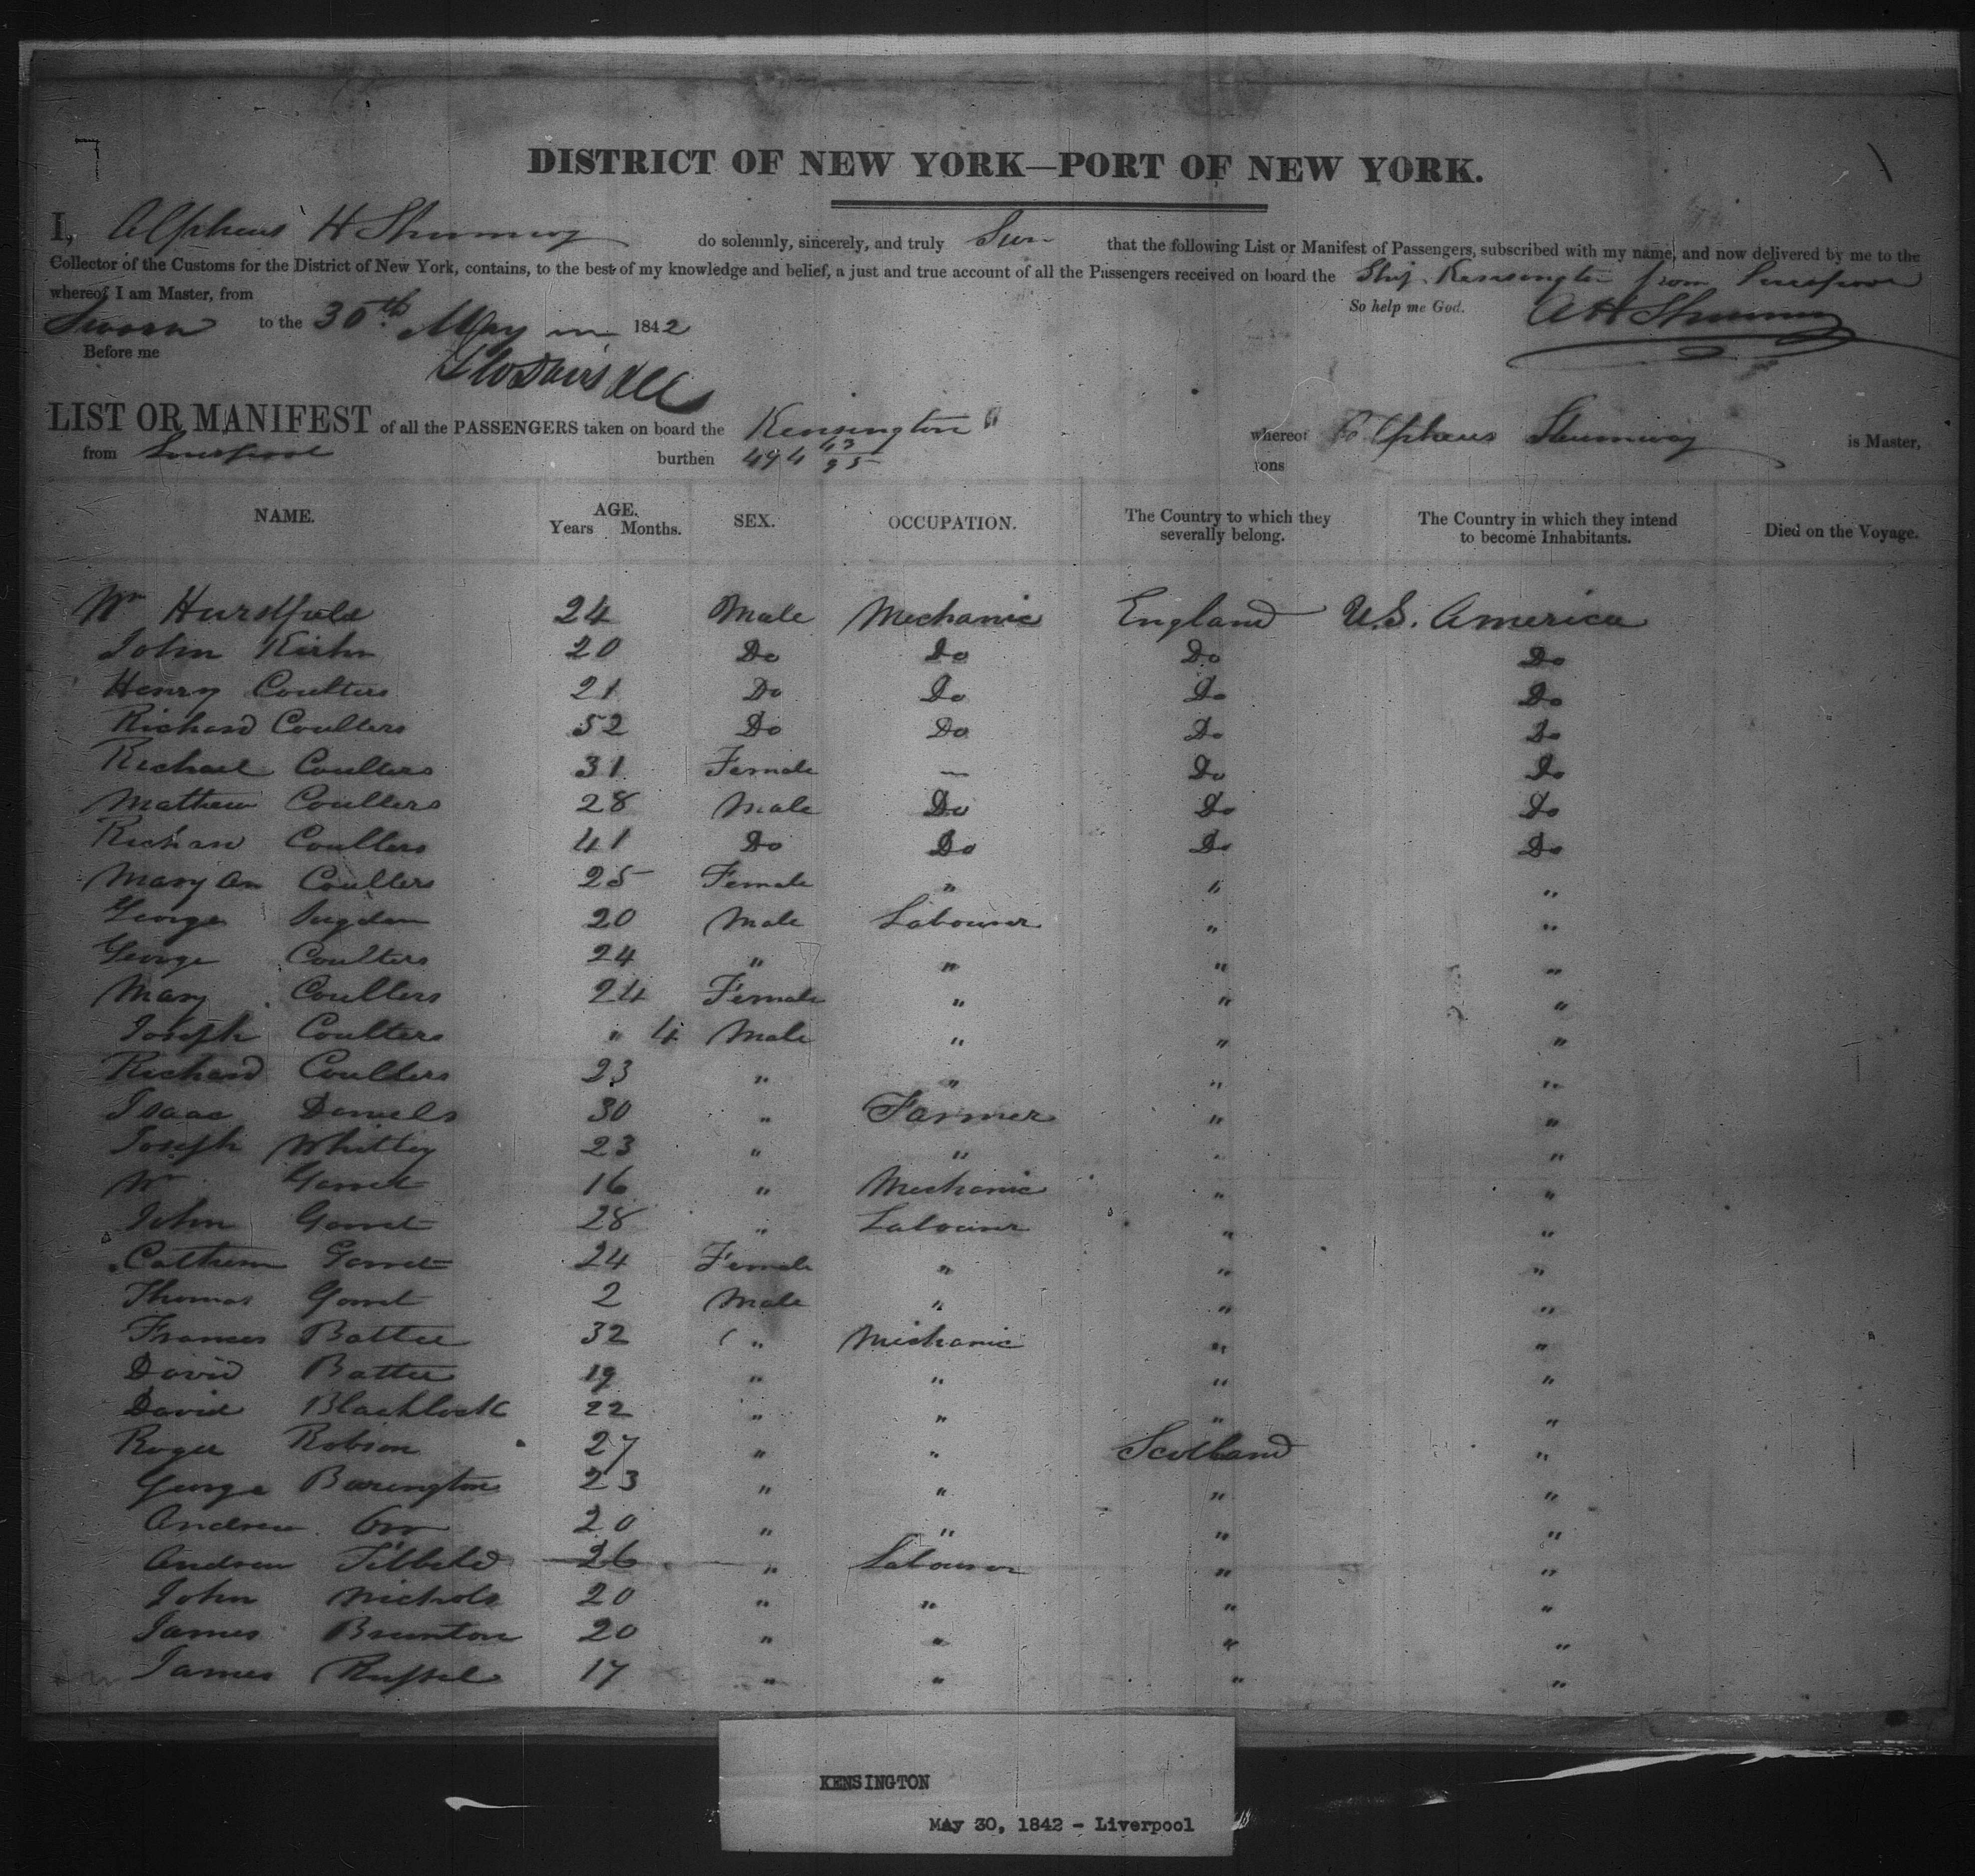 DISTRICT OF NEW YORK—PORT OF NEW YORK.
I, Alpheus H Shumway do solemnly, sincerely, and truly that the following List or Manifest of Passengers, subscribed with my name, and now delivered by me to the
Collector of the Customs for the District of New York, contains, to the best of my knowledge and belief, a just and true account of all the Passengers received on board the Ship Kensington from Liverpool
whereof I am Master, from So help me God. A H Shumway
Sworn to the 30th May 1842
Before me
LIST OR MANIFEST of all the PASSENGERS taken on board the Kensington whereof Alpheus Shumway is Master,
from Liverpool burthen 494 63/95 tons
NAME. AGE. Years Months. SEX. OCCUPATION. The Country to which they severally belong. The Country in which they intend to become Inhabitants. Died on the Voyage.
Wm Hurstfield 24 Male Mechanic England U.S. America
John 20 Do Do Do Do
Henry Coulters 21 Do Do Do Do
Richard Coulters 52 Do Do Do Do
Richael Coulters 31 Female — Do Do
Mathew Coulters 28 Male Do Do Do
Richard Coulters 41 Do Do Do Do
Mary An Coulters 25 Female " " "
George Sugden 20 Male Labourer " "
George Coulters 24 " " " "
Mary Coulters 24 Female " " "
Joseph Coulters " 4 Male " " "
Richard Coulters 23 " " " "
Isaac Daniels 30 " Farmer " "
Joseph Whitley 23 " " " "
Wm 16 " Mechanic " "
John 28 " Labourer " "
24 Female " " "
Thomas 2 Male " " "
Frances Battee 32 " Mechanic " "
David Battee 19 " " " "
David Blacklock 22 " " " "
Roger Robson 27 " " Scotland "
George Barington 23 " " " "
Andrew Orr 20 " " " "
Andrew 26 " Labourer " "
John Nichols 20 " " " "
James Brunton 20 " " " "
James Russel 17 " " " "
KENSINGTON
May 30, 1842 - Liverpool